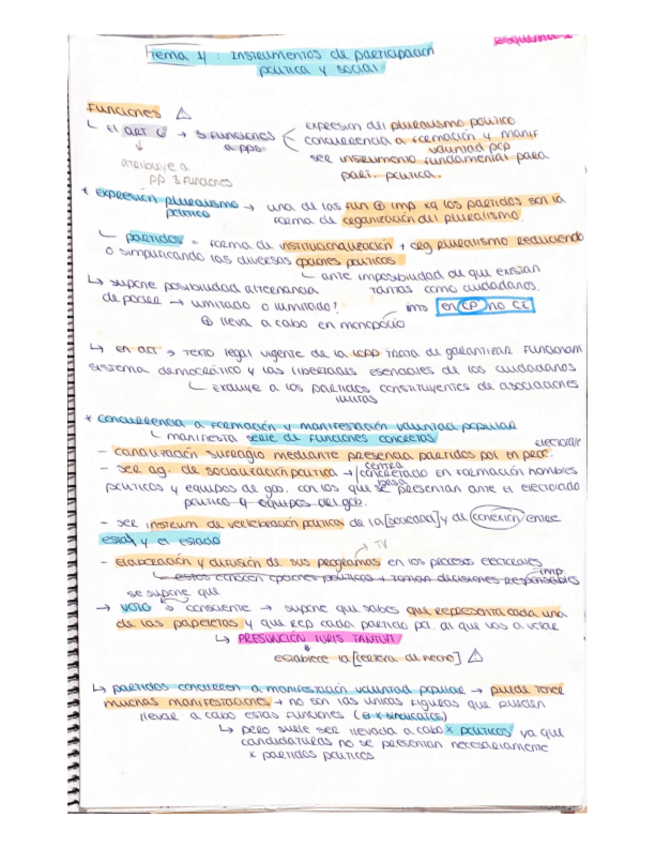 esquema 1
Tema 4 : Instrumentos de participación
política y social
Funciones ⚠
El art 6 → 3 funciones
a pps
expresión del pluralismo político
concurrencia a formación y manif
voluntad pop
ser instrumento fundamental para
part. política.
↓
atribuye a
PP 3 funciones
* expresión pluralismo político → una de las fun ⊕ imp xq los partidos son la
forma de organización del pluralismo.
partidos = forma de institucionalización + org pluralismo reduciendo
o simplificando las diversas opciones políticas
ante imposibilidad de que existan
tantas como ciudadanos.
↳ supone posibilidad alternancia
de poder → limitado o ilimitado?
en CP no CE
⊕ lleva a cabo en monopolio
↳ en act → texto legal vigente de la LOPP trata de garantizar funcionam
sistema democrático y las libertades esenciales de los ciudadanos
excluye a los partidos constituyentes de asociaciones
ilícitas
* concurrencia a formación y manifestación voluntad popular
manifiesta serie de funciones concretas
electorale
- canalización sufragio mediante presencia partidos pol en proc.
- ser ag. de socialización política → centra
concretado en formación hombres
políticos y equipos de gob. con los que se presentan ante el electorado
política y equipos del gob.
- ser instrum de vertebración política de la [sociedad] y de conexión entre
esta y el estado
→ TV
- elaboración y difusión de sus programas en los procesos electorales
estos conocen opciones políticas + toman decisiones responsables
imp
se supone que
→ voto es consciente → supone que sabes que representa cada una
de las papeletas y que rep cada partido pol. al que vas a votar
↳ PRESUNCIÓN IURIS TANTUM
establece la [certeza de hecho] ⚠
↳ partidos concurren a manifestación voluntad popular → puede tener
muchas manifestaciones → no son las únicas figuras que pueden
llevar a cabo estas funciones (ej x sindicatos)
↳ pero suele ser llevada a cabo x políticos ya que
candidaturas no se presentan necesariamente
x partidos políticos